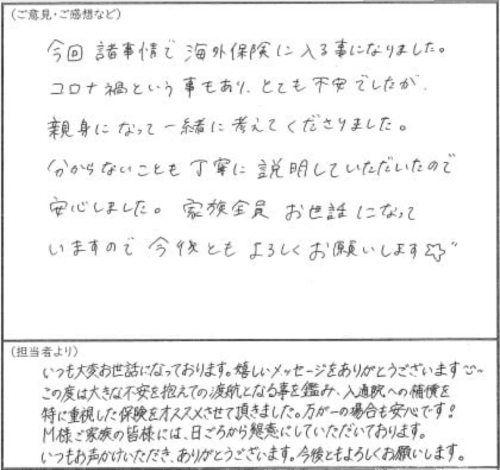 (ご意見・ご感想など)
今回 諸事情で 海外保険に入る事になりました。
コロナ禍という事もあり、とても不安でしたが、
親身になって一緒に考えてくださりました。
分からないことも丁寧に説明していただいたので
安心しました。 家族全員 お世話になって
いますので 今後とも よろしくお願いします☆彡"
(担当者より)
いつも大変お世話になっております。嬉しいメッセージをありがとうございます
この度は大きな不安を抱えての渡航となる事を鑑み、入通院への補償を
特に重視した保険をオススメさせて頂きました。万が一の場合も安心です!
M様ご家族の皆様には、日ごろから懇意にしていただいております。
いつもお声かけいただき、ありがとうございます。今後ともよろしくお願いします。